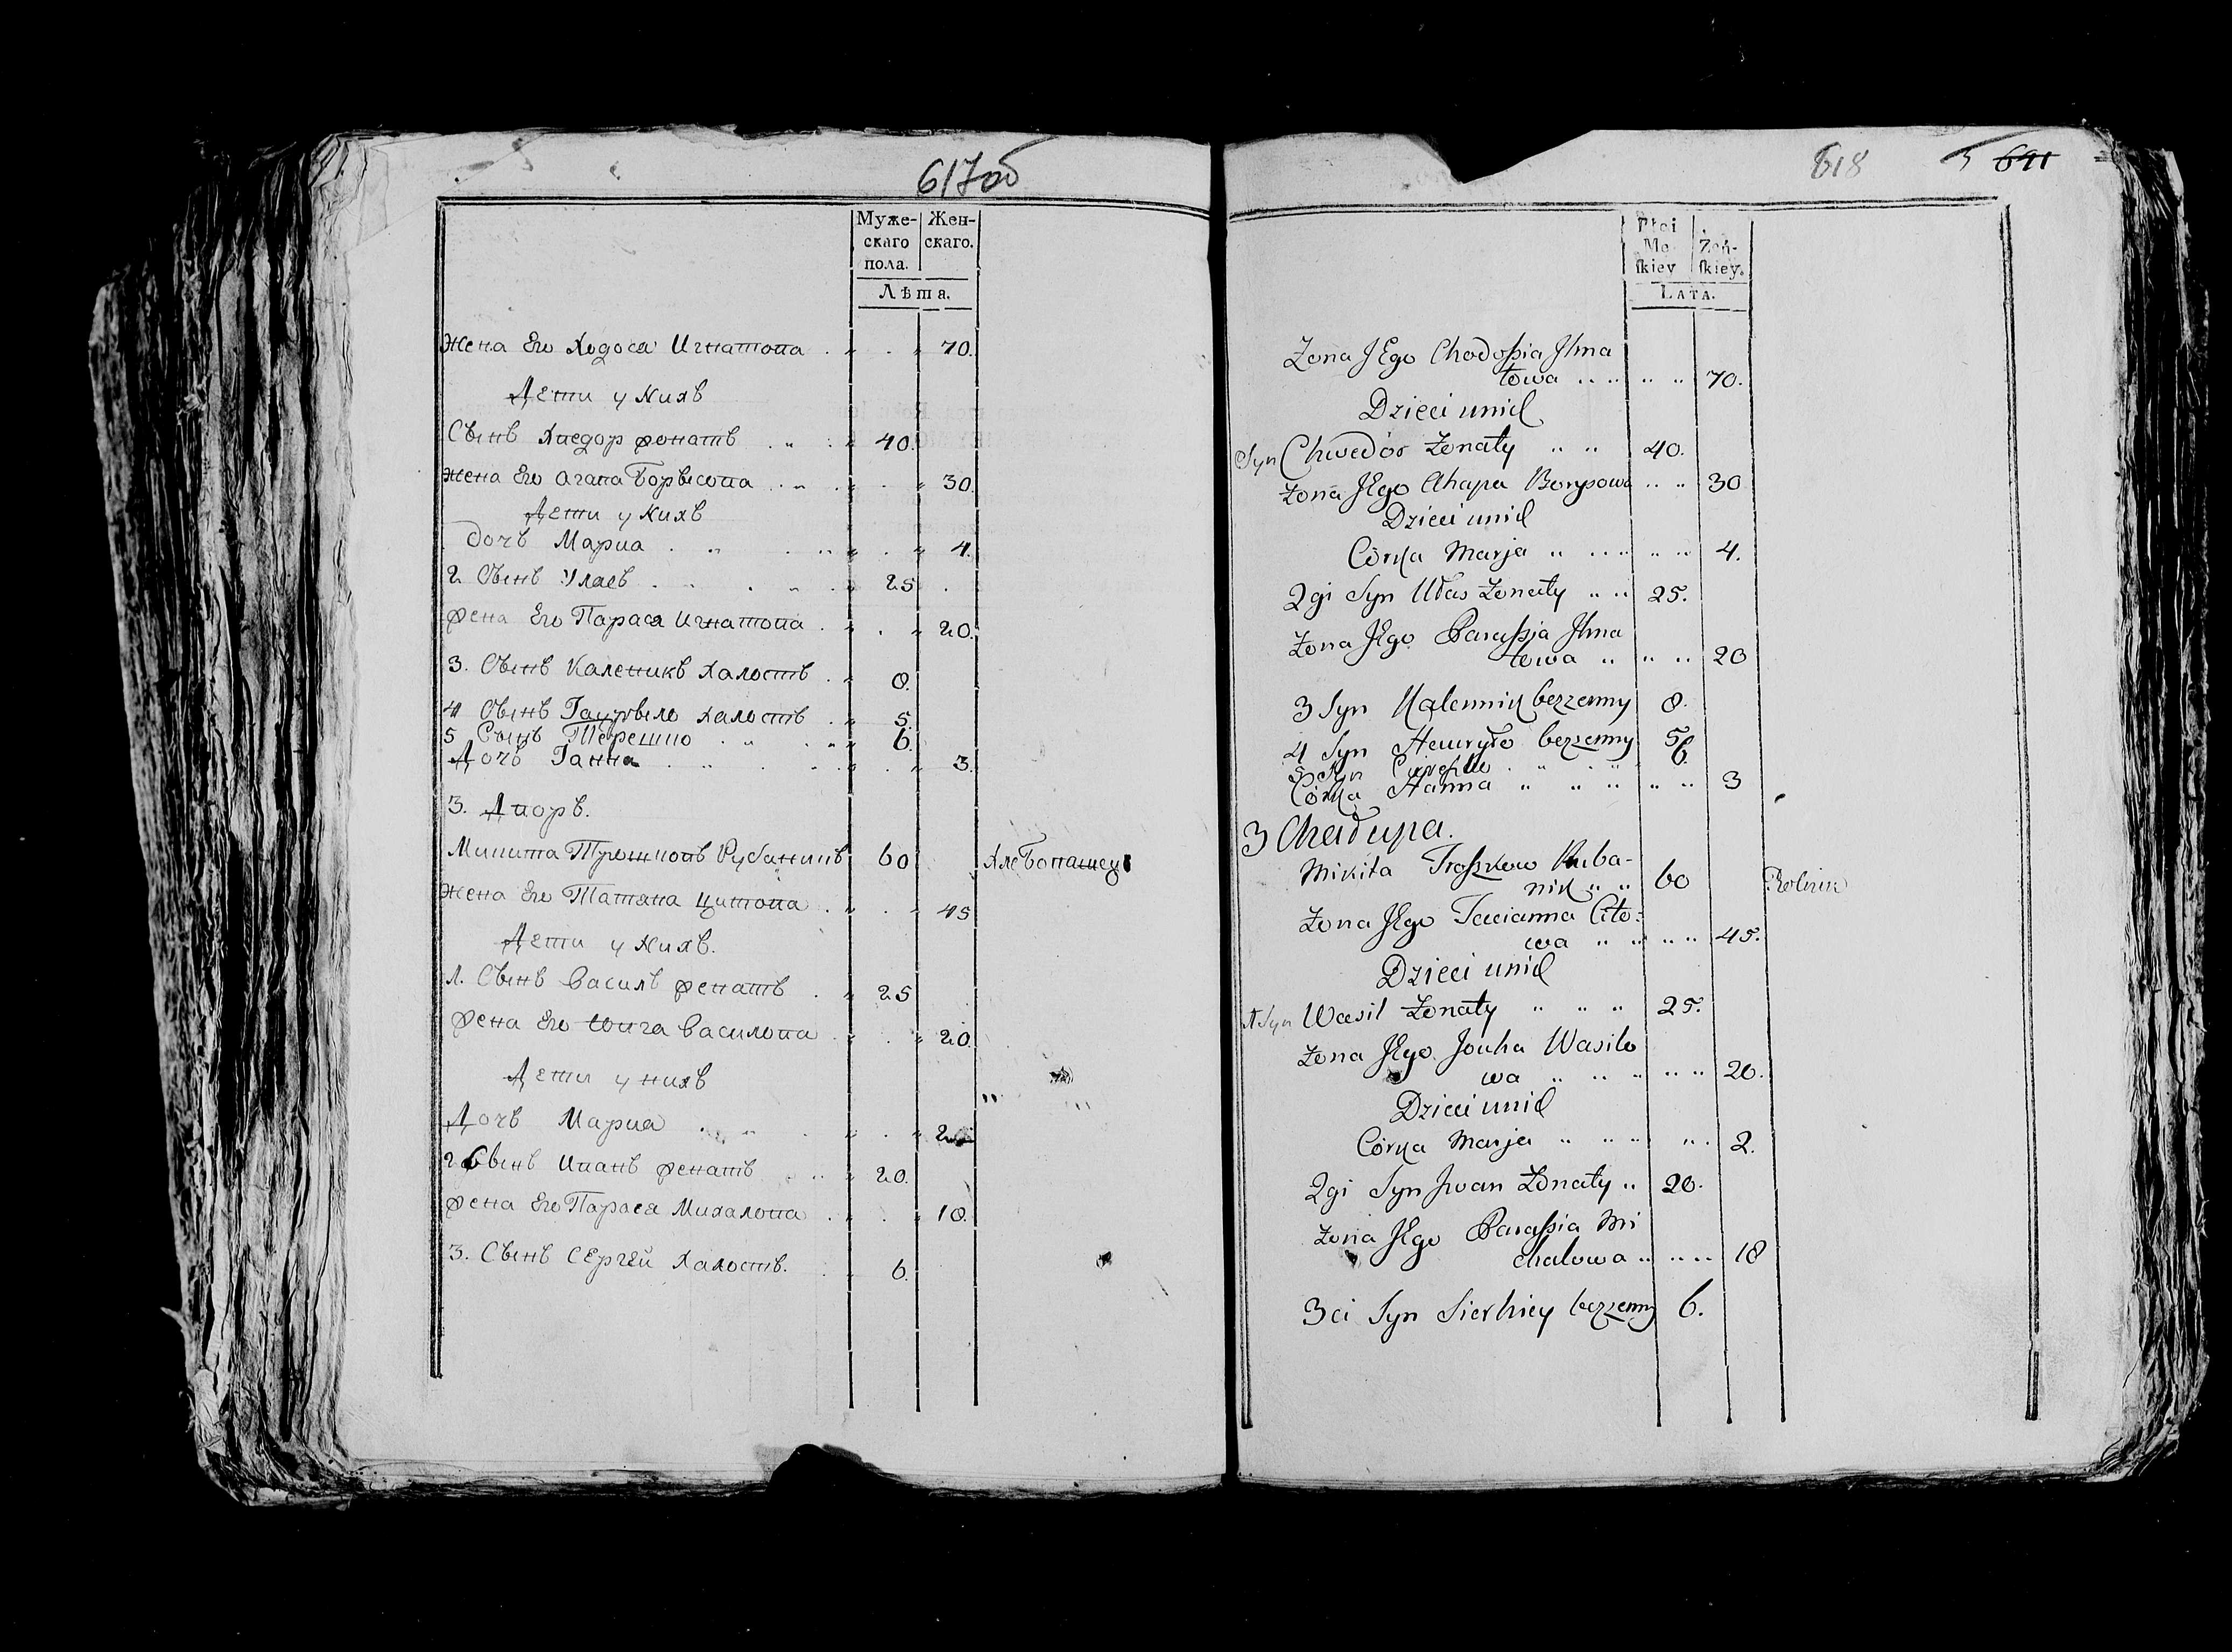 617об
Муже-
скаго
пола.
Жен-
скаго.
Лѣта.
Жена Его Ходося Игнатова 70.
Дети у Нихъ
Сынъ Хведор жонатъ 40.
Жена Его Агапа Борысова 30.
Дети у Нихъ
дочь Мариа 4.
2 Сынъ Улась 25
жена Его Парася Игнатова 20.
3. Сынъ Каленикъ Халостъ 8.
4 Сынъ Гаурыло халостъ 5.
5 Сынъ Терешко 6.
Дочь Ганна 3.
3. Дворъ.
Микита Трошковъ Рубаникъ 60 Хлебопашецъ
Жена Его Татяна Цитова 45
Дети у Нихъ.
1. Сынъ Василь женатъ 25
жена Его Василова 20.
Дети у нихъ
Дочь Мариа 2
2 Сынъ Иванъ женатъ 20.
жена Его Парася Михалова 18.
3. Сынъ Сергей Халостъ. 6.
618 691
Płci
Mę-
skiey
Żeń-
skiey.
LATA.
Zona JEgo Chodosia Jhna
towa 70.
Dzieci unich
Syn Chwedor Zonaty 40.
Zona JEgo Ahapa Borysowa 30
Dzieci unich
Córka Marja 4.
2gi Syn Ułas Zonaty 25.
Zona JEgo Parasja Jhna
towa 20
3 Syn Kalennik bezzenny 8.
4 Syn Hauryło bezzenny 5
5 Syn 6.
Córka Hanna 3
3 Chałupa.
Mikita Troszkow Ruba-
nik 60 Rolnik
Zona JEgo Tacianna Cito-
wa 45.
Dzieci unich
1 Syn Wasil Zonaty 25.
Zona JEgo Jouha Wasilo
wa 20.
Dzieci unich
Córka Marja 2.
2gi Syn Jwan Zonaty 20.
Zona JEgo Parasia Mi
chalowa 18
3ci Syn Sierhiey bezzenny 6.